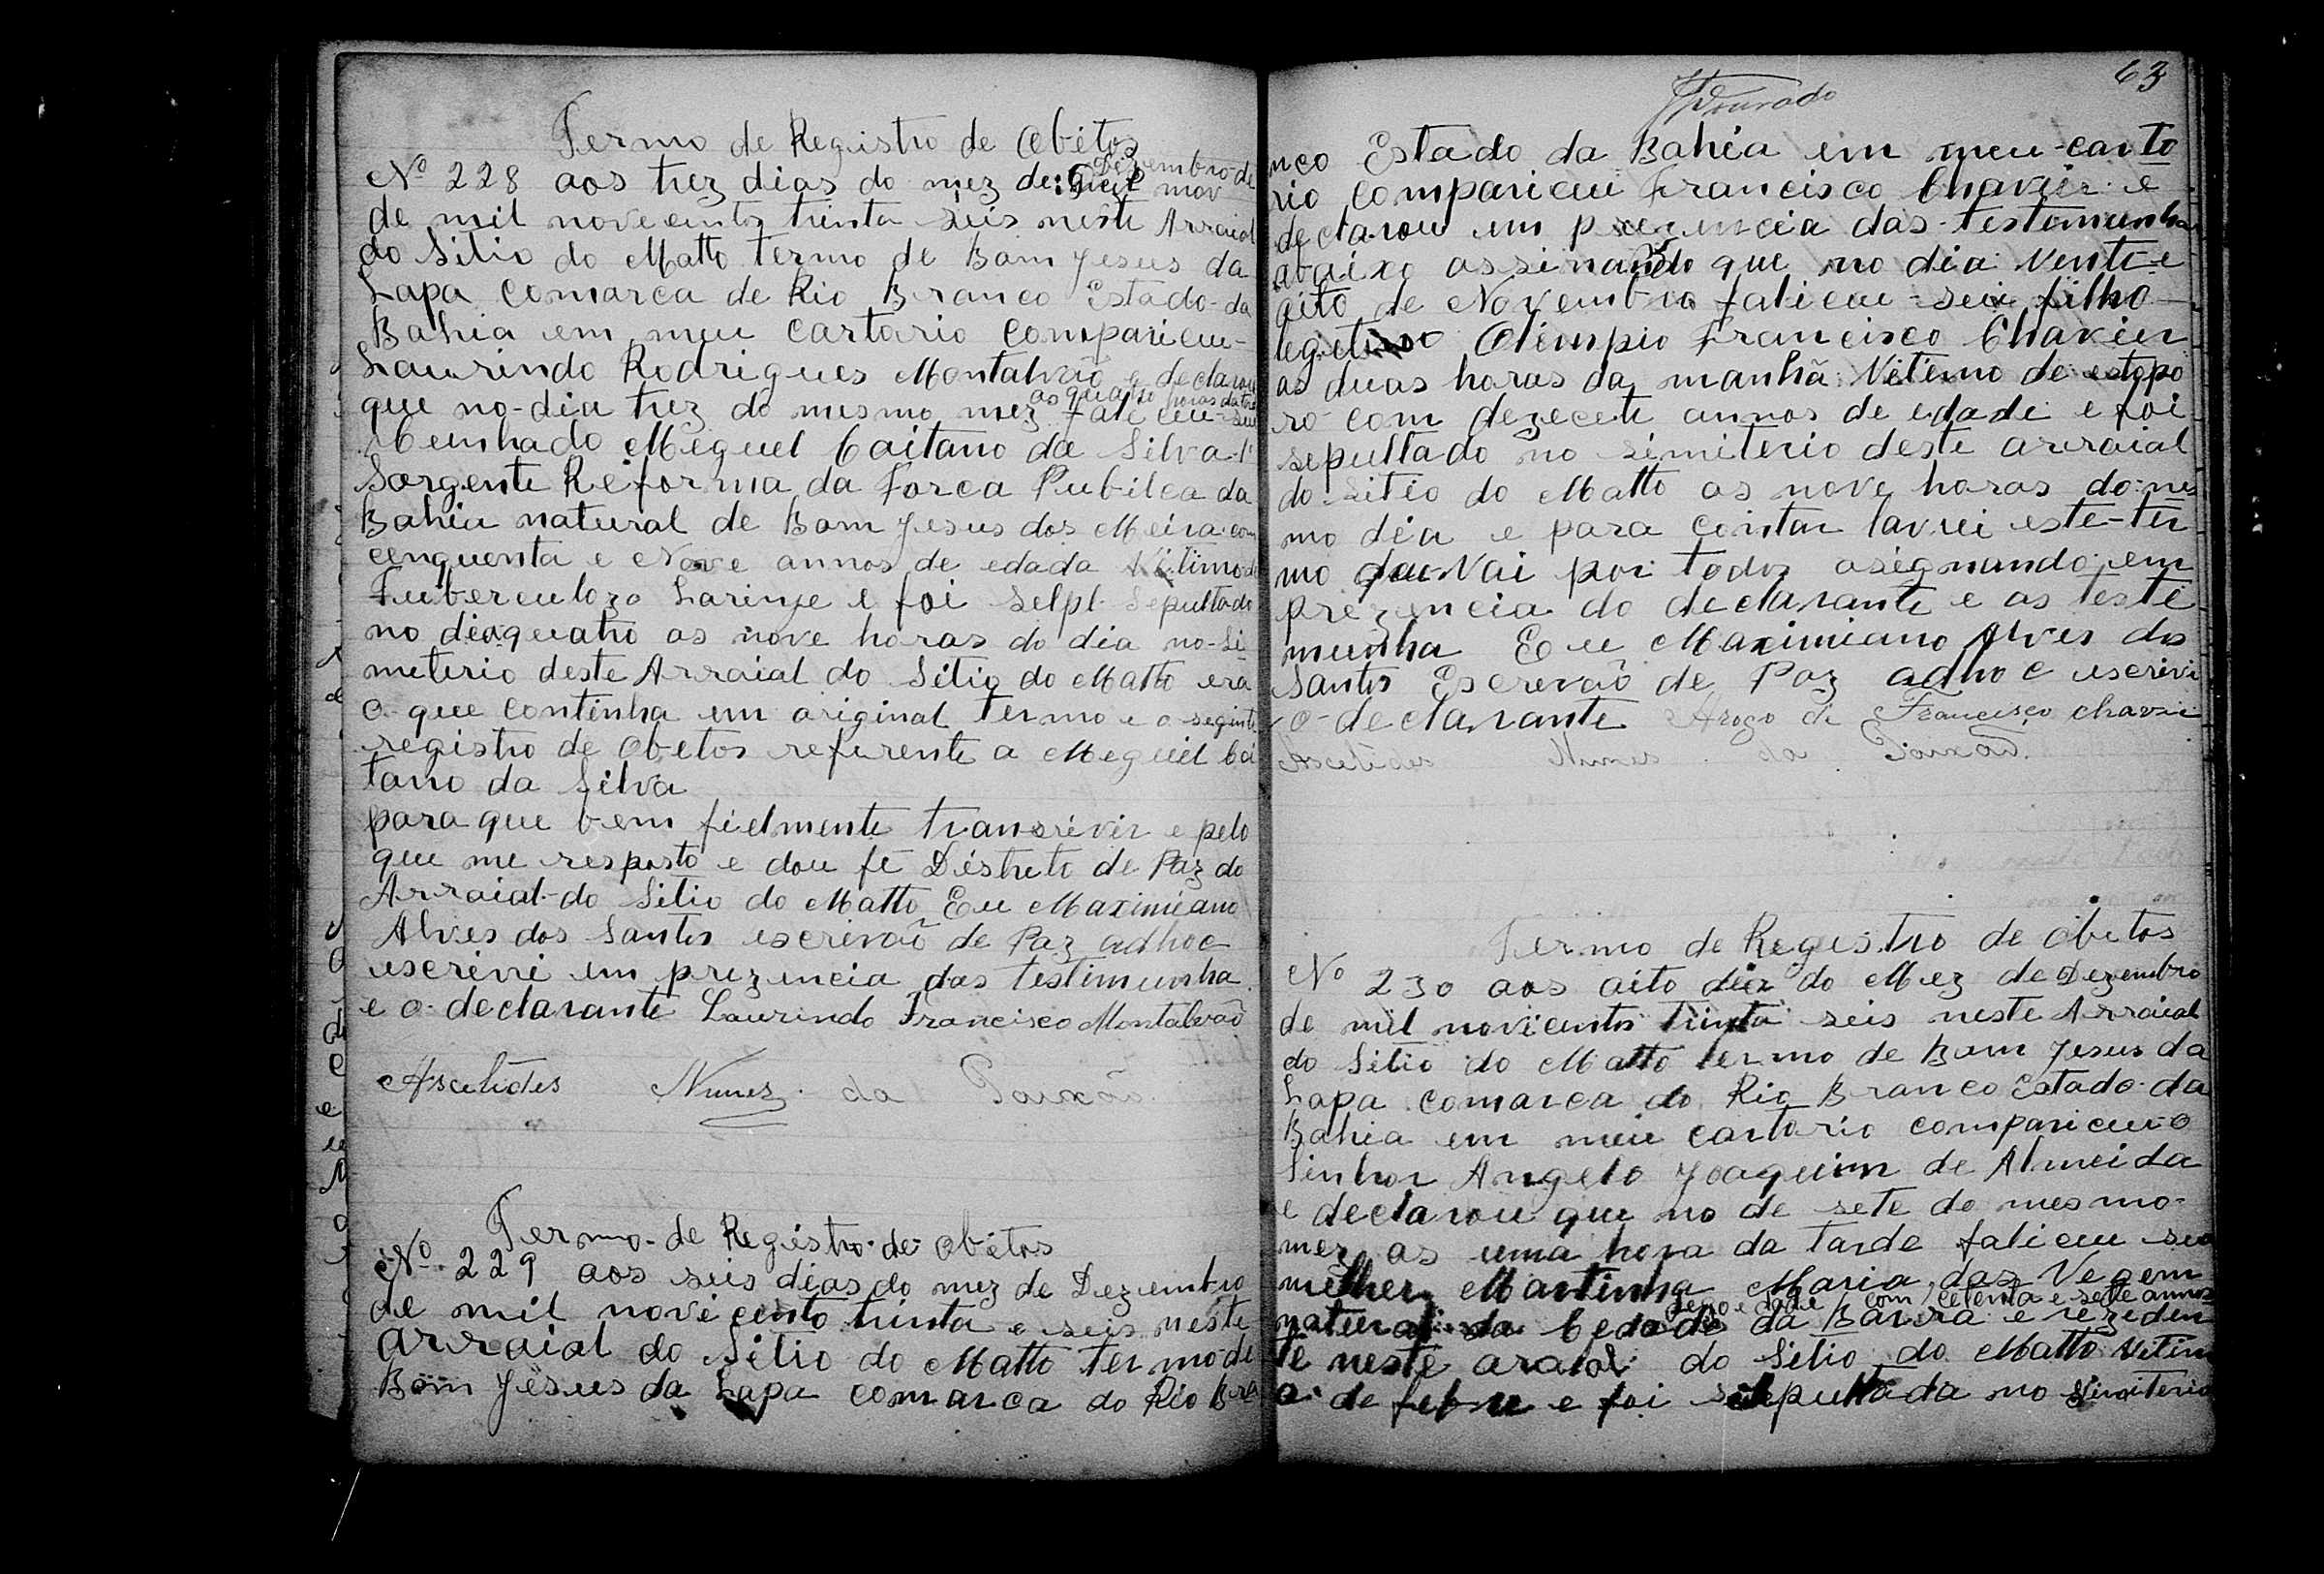 Termo de Registro de Obitos
Nº 228 aos trez dias do mez de Dezembro de
de mil novecentos trinta seis neste Arraial
do Sitio do Matto termo de Bom Jesus da
Lapa comarca de Rio Branco Estado da
Bahia em meu cartorio compariceu
Laurindo Rodrigues Montalvão e declarou
as quatro horas da tarde
que no dia trez do mesmo mez faliceu seu
cunhado Meguel Caitano da Silva 1º
Sargente Reforma da Forca Publica da
Bahia natural de Bom Jesus dos Meira com
cenquenta e Nove annos de edada Vitimo de
Tuberculoza Larinje e foi selpl sepultado
no dia quatro as nove horas do dia no Si
meterio deste Arraial do Sitio do Matto era
o que continha em original termo e o seginte
registro de Obetos referente a Meguel Cai
tano da Silva
para que bem fielmente transcrivir e pelo
que me resposto e dou fé Destreto de Paz do
Arraial do Sitio do Matto Eu Maximiano
Alves dos Santos escrivão de Paz adhoc
escrivi em prezencia das testimunha
e o declarante Laurindo Francisco Montalvão
Ascelides Nunes da Paixão
Termo de Registro de Obitos
Nº 229 aos seis dias do mez de Dezembro
de mil novicento trinta e seis neste
arraial do Sitio do Matto termo de
Bom Jesus da Lapa comarca do Rio Bra
63
Dourado
nco Estado da Bahia em meu carto
rio compariceu Francisco Chavier e
declarou em prezencia das testemunha
abaixo assinando que no dia vente e
oito de Novembro faliceu seu filho
legetimo Olimpio Francisco Chavier
as duas horas da manhã Vitimo de estopo
ro com dezecete annos de edade e foi
sepultado no simiterio deste arraial
do sitio do Matto as nove horas do mes
mo dia e para contar lavrei este ter
mo que Vai por todos asignando em
prezencia do declarante e as teste
munha Eu Maximiano Alves dos
Santos Escrevão de Paz adhoc escrivi
o declarante Arogo de Francisco chavie
Ascelides Nunes da Paixão
Termo de Registro de Obitos
Nº 230 aos oito dia do Mez de Dezembro
de mil novicentos trinta seis neste Arraial
do Sitio do Matto termo de Bom Jesus da
Lapa comarca do Rio Branco Estado da
Bahia em meu cartorio compariceu o
Sinhor Angelo Joaquim de Almeida
e declarou que no de sete do mesmo
mez as uma hora da tarde faliceu sua
mulher Martinha Maria das Vegem
com cetenta e sete annos
natural da Cedade da Barra e reziden
te neste araial do Sitio do Matto Vitim
a de febre e foi sepultada no simiterio